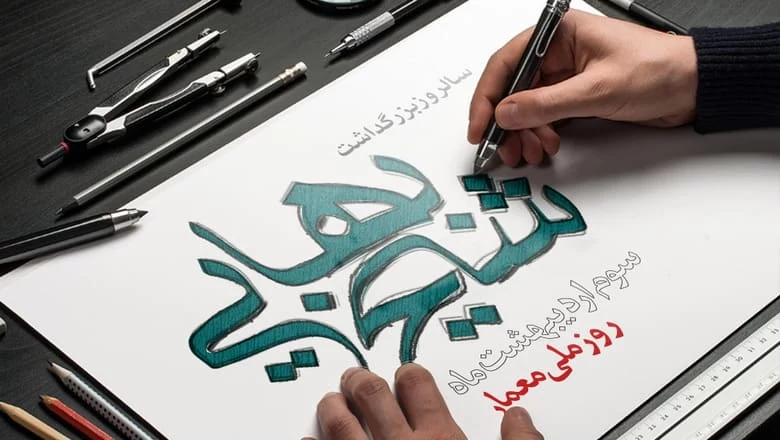 سالروز بزرگداشت
شیخ بهایی
سوم اردیبهشت ماه
روز ملی معمار